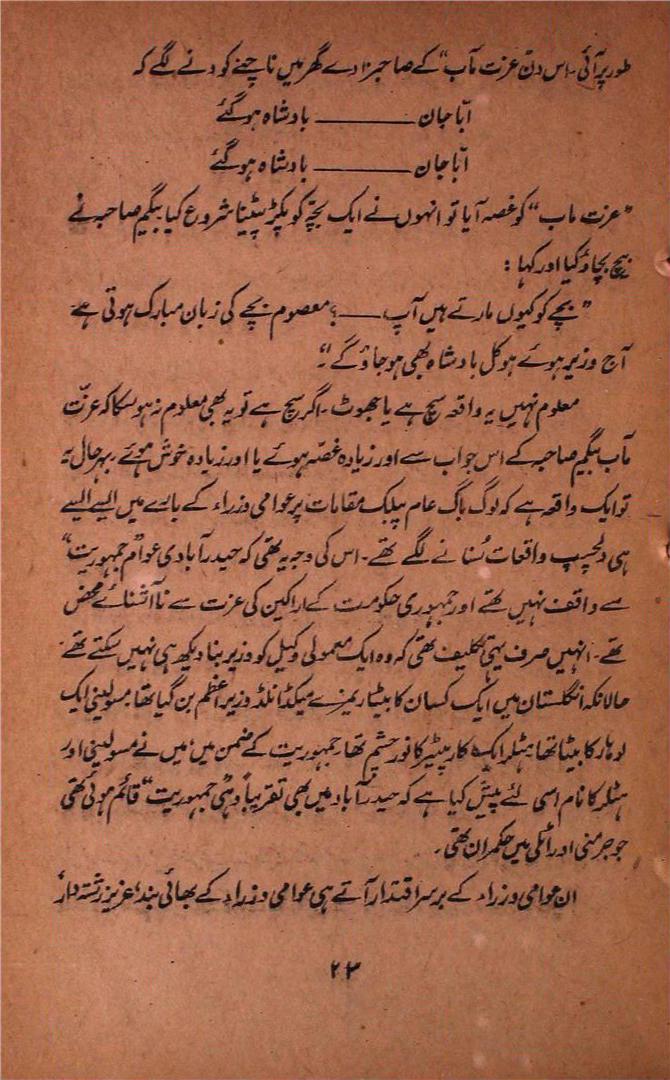 طور پر آئی۔ اس دن عزت مآب" کے صاحبزادے گھر میں ناچنے کودنے لگے کہ
ابّا جان ـــــــــ بادشاہ ہو گئے
ابّا جان ـــــــــ بادشاہ ہو گئے
"عزت ماب" کو غصہ آیا تو انہوں نے ایک بچّہ کو پکڑ پیٹنا شروع کیا بیگم صاحبہ نے
بیچ بچاؤ کیا اور کہا :
"بچے کو کیوں مارتے ہیں آپ ـــــ؟ معصوم بچے کی زبان مبارک ہوتی ہے
آج وزیر ہوئے ہو کل بادشاہ بھی ہو جاؤ گے"۔
معلوم نہیں یہ واقعہ سچ ہے یا جھوٹ۔ اگر سچ ہے تو یہ بھی معلوم نہ ہو سکا کہ عزّت
مآب بیگم صاحبہ کے اس جواب سے اور زیادہ غصّہ ہوئے یا اور زیادہ خوش ہوئے۔ بہر حال یہ
تو ایک واقعہ ہے کہ لوگ باگ عام پبلک مقامات پر عوامی وزراء کے بارے میں ایسے ایسے
ہی دلچسپ واقعات سُنانے لگے تھے۔ اس کی وجہ یہ تھی کہ حیدرآبادی عوام "جمہوریت"
سے واقف نہیں تھے اور جمہوری حکومت کے اراکین کی عزت سے ناآشنائے محض
تھے۔ انہیں صرف یہی تکلیف تھی کہ وہ ایک معمولی وکیل کو وزیر بنا دیکھ ہی نہیں سکتے تھے
حالانکہ انگلستان میں ایک کسان کا بیٹا ریمزے میکڈانلڈ وزیراعظم بن گیا تھا۔ مسولینی ایک
لوہار کا بیٹا تھا۔ ہٹلر ایک کارپنٹر کا نور چشم تھا۔ جمہوریت کے ضمن میں میں نے مسولینی اور
ہٹلر کا نام اسی لئے پیش کیا ہے کہ حیدرآباد میں بھی تقریباً وہی جمہوریت" قائم ہوئی تھی
جو جرمنی اور اٹلی میں حکمران تھی۔
ان عوامی وزراء کے برسراقتدار آتے ہی عوامی وزراء کے بھائی بند، عزیز رشتہ دار،
۲۳